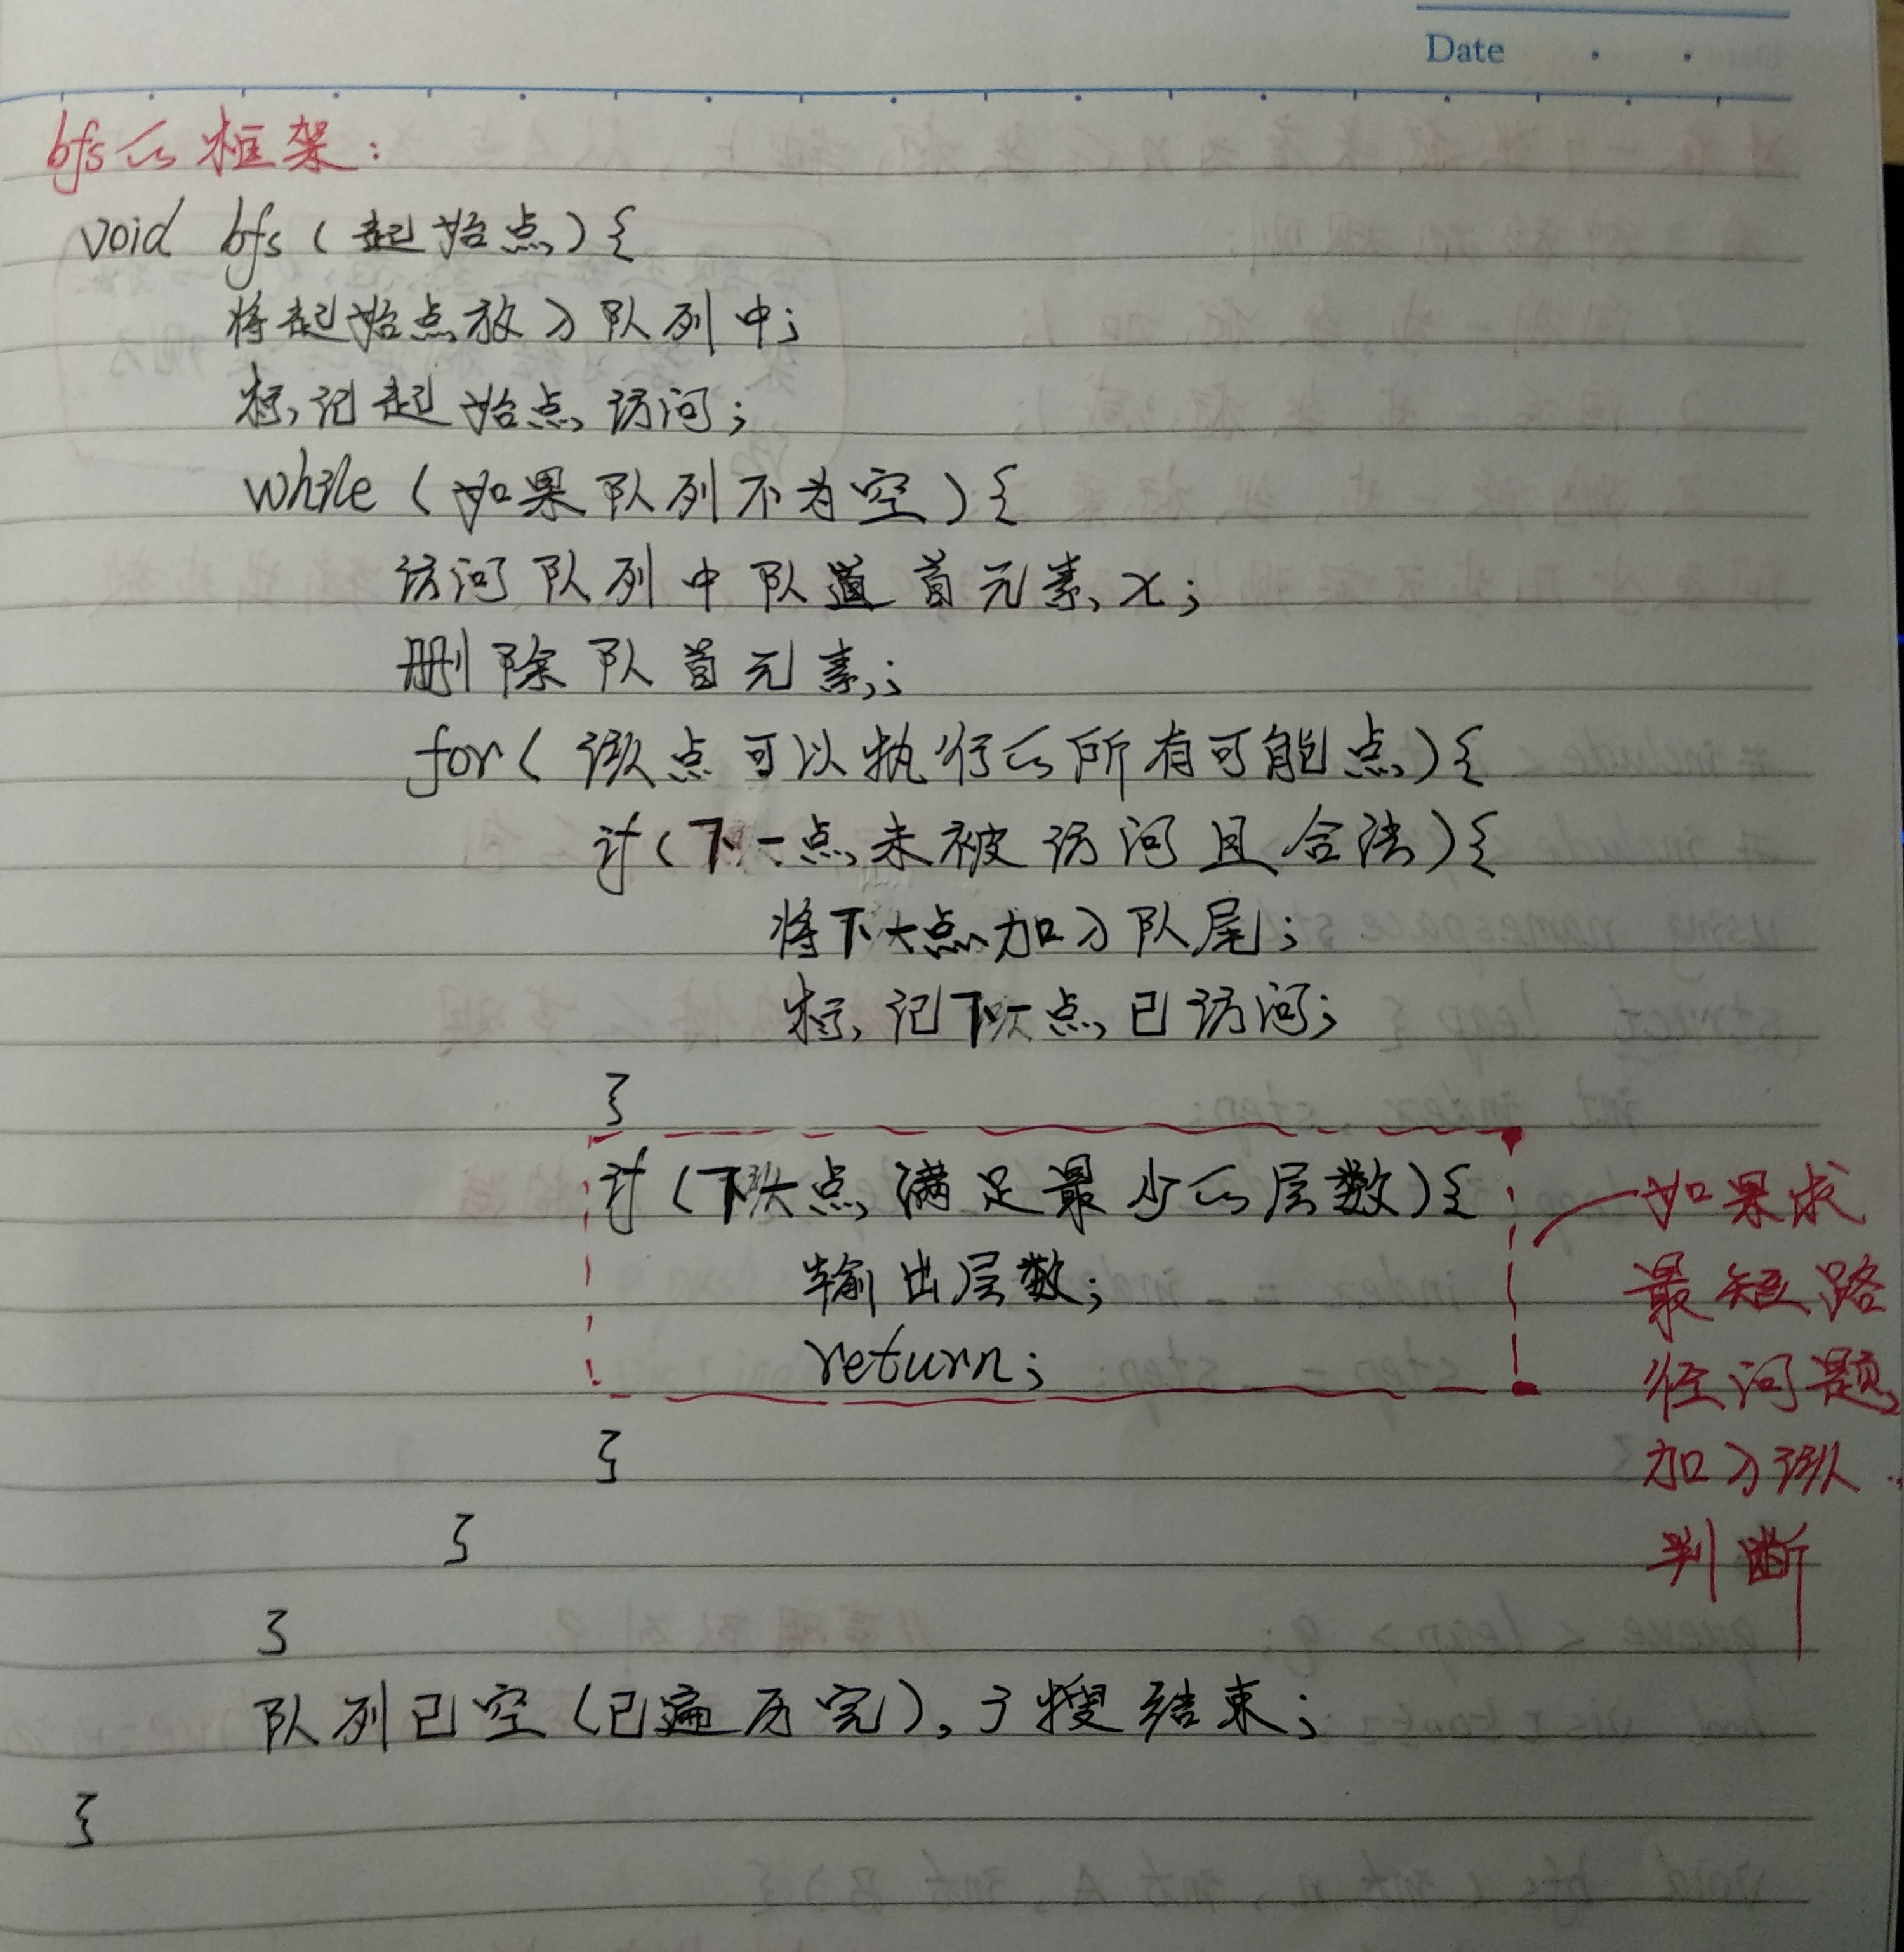 Date
bfs的框架:
void bfs(起始点){
将起始点放入队列中;
标记起始点访问;
while(如果队列不为空){
访问队列中队首元素x;
删除队首元素;
for(该点可以执行的所有可能点){
if(下一点未被访问且合法){
将下一点加入队尾;
标记下一点已访问;
}
if(下一点满足最少的层数){
输出层数;
return;
}
}
}
队列已空(已遍历完),广搜结束;
}
如果求
最短路
径问题,
加入该
判断